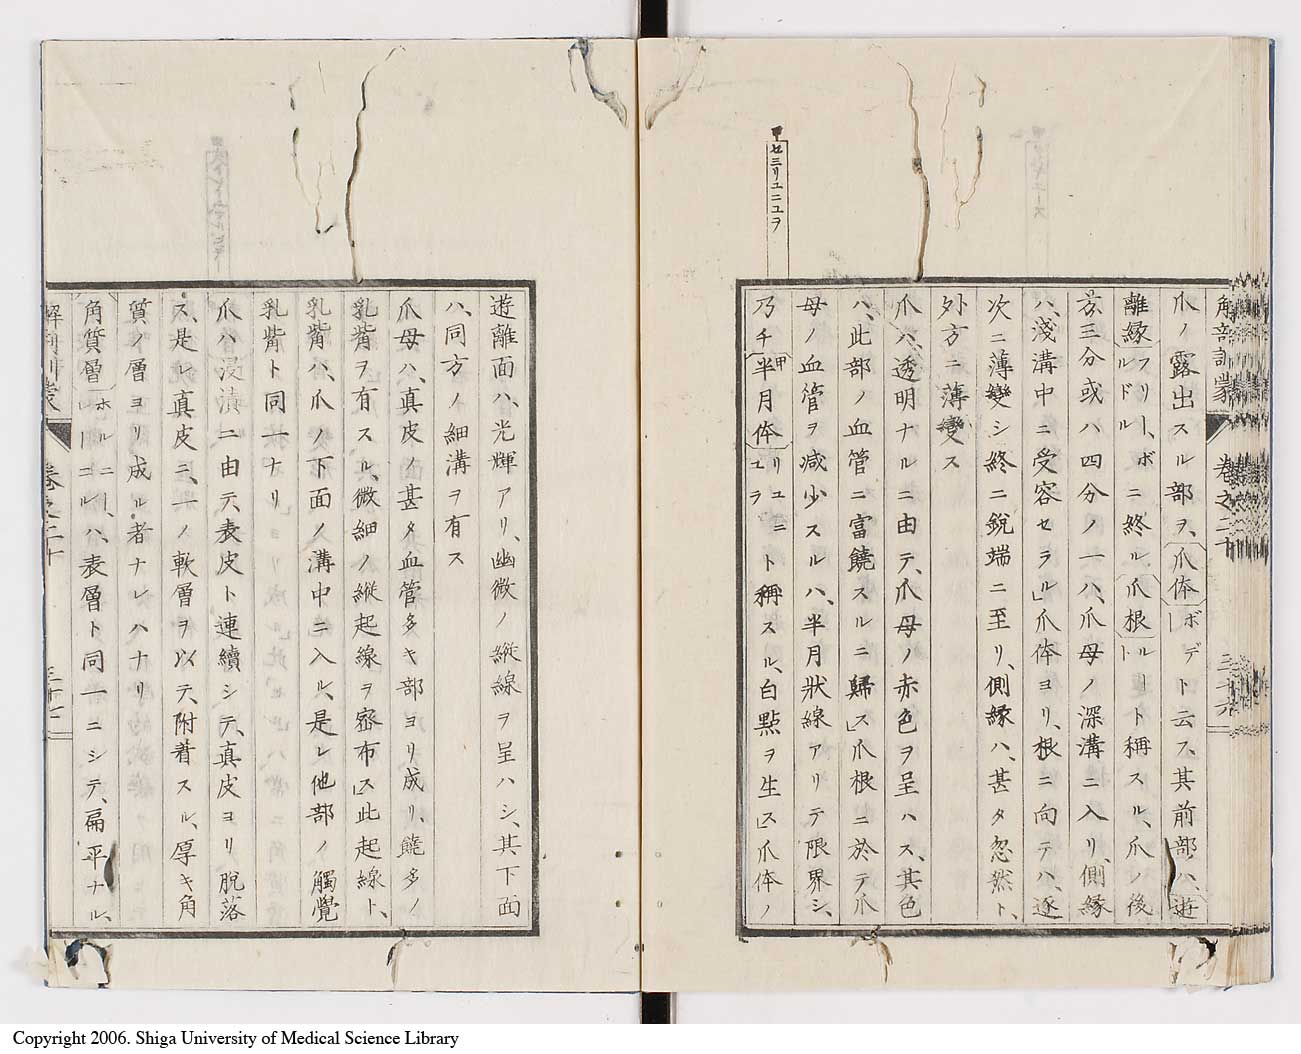 甲 セミリユニユヲ
解剖訓蒙 卷之二十 三十九
爪ノ露出スル部ヲ、爪体 ボデー ト云フ、其前部ハ、遊
離縁 フリー、ボルドル ニ終ル、爪根 ルート ト稱スル、爪ノ後
方三分或ハ四分ノ一ハ、爪母ノ深溝ニ入リ、側縁
ハ、淺溝中ニ受容セラル」爪体ヨリ、根ニ向テハ、逐
次ニ薄變シ終ニ銳端ニ至リ、側縁ハ、甚タ忽然ト、
外方ニ薄變ス
爪ハ、透明ナルニ由テ、爪母ノ赤色ヲ呈ハス、其色
ハ、此部ノ血管ニ富饒スルニ歸ス」爪根ニ於テ爪
母ノ血管ヲ減少スルハ、半月狀線アリテ限界シ、
乃チ 甲 半月体 リユニユラ ト稱スル、白點ヲ生ス」爪体ノ
遊離面ハ、光輝アリ、幽微ノ縱線ヲ呈ハシ、其下面
ハ、同方ノ細溝ヲ有ス
爪母ハ、真皮ノ甚タ血管多キ部ヨリ成リ、饒多ノ
乳觜ヲ有スル、微細ノ縱起線ヲ密布ス」此起線ト、
乳觜ハ、爪ノ下面ノ溝中ニ入ル、是レ他部ノ觸覺
乳觜ト同一ナリ
爪ハ浸漬ニ由テ、表皮ト連續シテ、真皮ヨリ脫落
ス、是レ真皮ニ、一ノ軟層ヲ以テ、附着スル、厚キ角
質ノ層ヨリ成ル者ナレハナリ
角質層 ホルニー レーエル ハ、表層ト同一ニシテ、扁平ナル、
解剖訓蒙 卷之二十